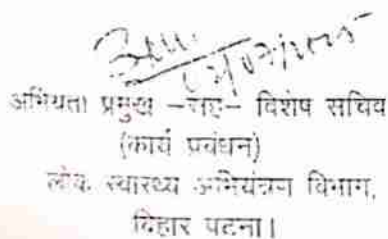 अभियंता प्रमुख –सह– विशेष सचिव
(कार्य प्रबंधन)
लोक स्वास्थ्य अभियंत्रण विभाग,
बिहार पटना।